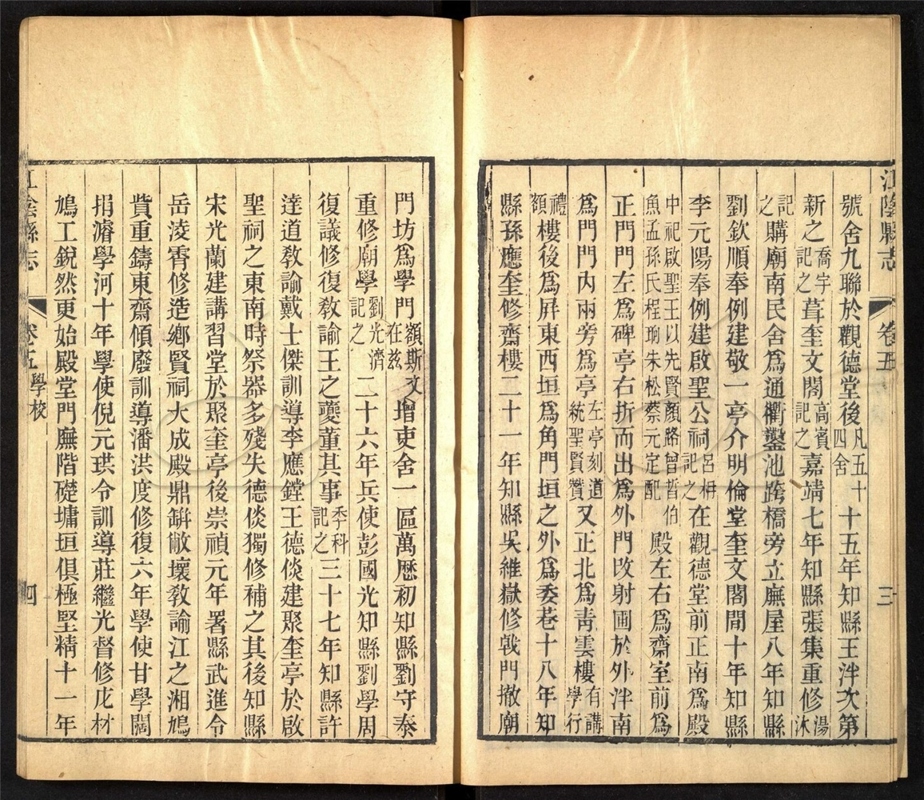 江陰縣志
卷五
三
號舍九聯於觀德堂後凡五十四舍十五年知縣王泮次第
新之喬宇記之葺奎文閣高賓記之嘉靖七年知縣張集重修湯沐
記之購廟南民舍爲通衢鑿池跨橋旁立廡屋八年知縣
劉欽順奉例建敬一亭介明倫堂奎文閣間十年知縣
李元陽奉例建啟聖公祠呂柟記之在觀德堂前正南爲殿
中祀啟聖王以先賢顏路曾晳伯魚孟孫氏程珦朱松蔡元定配殿左右爲齋室前爲
正門門左爲碑亭右折而出爲外門改射圃於外泮南
爲門門內兩旁爲亭左亭刻道統聖賢贊又正北爲靑雲樓有講學行
禮額樓後爲屏東西垣爲角門垣之外爲委巷十八年知
縣孫應奎修齋樓二十一年知縣吳維嶽修戟門撤廟
門坊爲學門額斯文在茲增吏舍一區萬曆初知縣劉守泰
重修廟學劉光濟記之二十六年兵使彭國光知縣劉學周
復議修復敎諭王之䕫董其事季科記之三十七年知縣許
達道敎諭戴士傑訓導李應鏜王德倓建聚奎亭於啟
聖祠之東南時祭器多殘失德倓獨修補之其後知縣
宋光蘭建講習堂於聚奎亭後崇禎元年署縣武進令
岳淩霄修造鄉賢祠大成殿鼎缾敝壞敎諭江之湘鳩
貲重鑄東齋傾廢訓導潘洪度修復六年學使甘學闊
捐濬學河十年學使倪元珙令訓導莊繼光督修庀材
鳩工銳然更始殿堂門廡階礎墉垣俱極堅精十一年
江陰縣志
卷五 學校
四